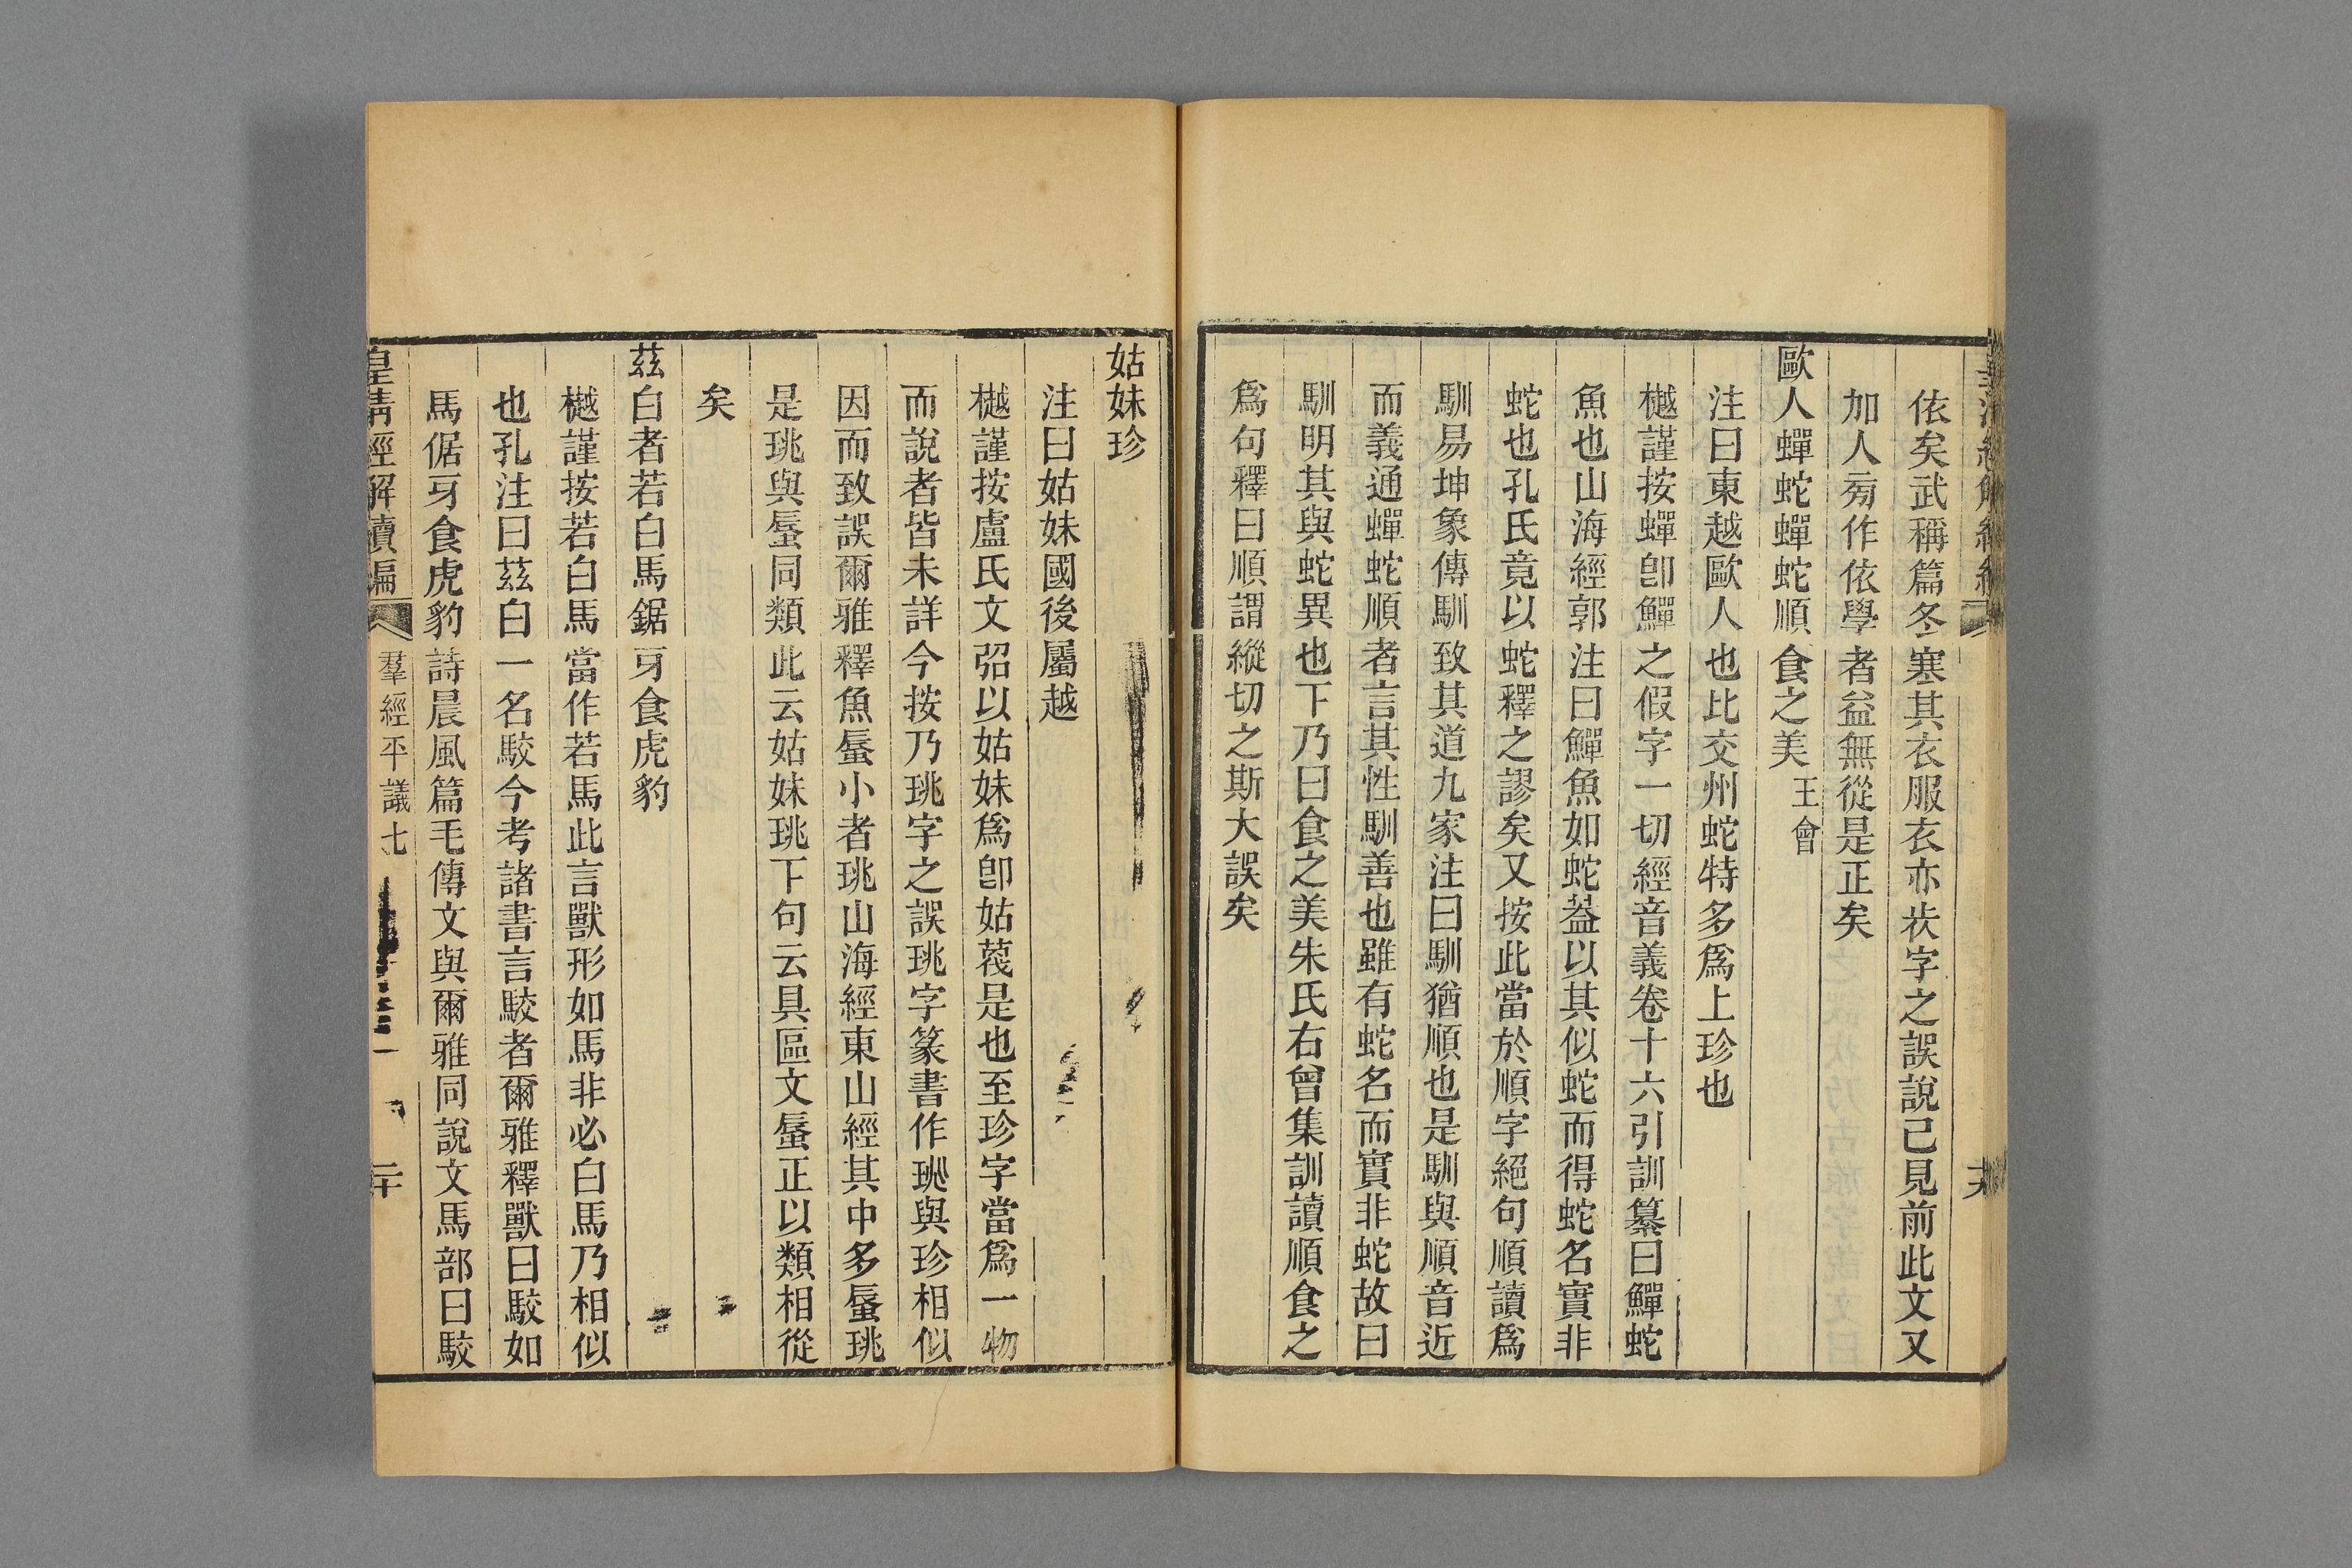 依矣武稱篇冬寒其衣服衣亦㡿字之誤說已見前此文又
加人㫄作依學者益無從是正矣
歐人蟬蛇蟬蛇順食之美王會
注曰東越歐人也比交州蛇特多爲上珍也
樾謹按蟬卽鱓之假字一切經音義卷十六引訓纂曰鱓蛇
魚也山海經郭注曰鱓魚如蛇葢以其似蛇而得蛇名實非
蛇也孔氏竟以蛇釋之謬矣又按此當於順字絕句順讀爲
馴易坤象傳馴致其道九家注曰馴猶順也是馴與順音近
而義通蟬蛇順者言其性馴善也雖有蛇名而實非蛇故曰
馴明其與蛇異也下乃曰食之美朱氏右曾集訓讀順食之
爲句釋曰順謂縱切之斯大誤矣
姑妹珍
注曰姑妹國後屬越
樾謹按盧氏文弨以姑妹爲卽姑蔑是也至珍字當爲一物
而說者皆未詳今按乃珧字之誤珧字篆書作珧與珍相似
因而致誤爾雅釋魚蜃小者珧山海經東山經其中多蜃珧
是珧與蜃同類此云姑妹珧下句云具區文蜃正以類相從
矣
茲白者若白馬鋸牙食虎豹
樾謹按若白馬當作若馬此言獸形如馬非必白馬乃相似
也孔注曰茲白一名駮今考諸書言駮者爾雅釋獸曰駮如
馬倨牙食虎豹詩晨風篇毛傳文與爾雅同說文馬部曰駮
皇清經解續編 羣經平議七 二十